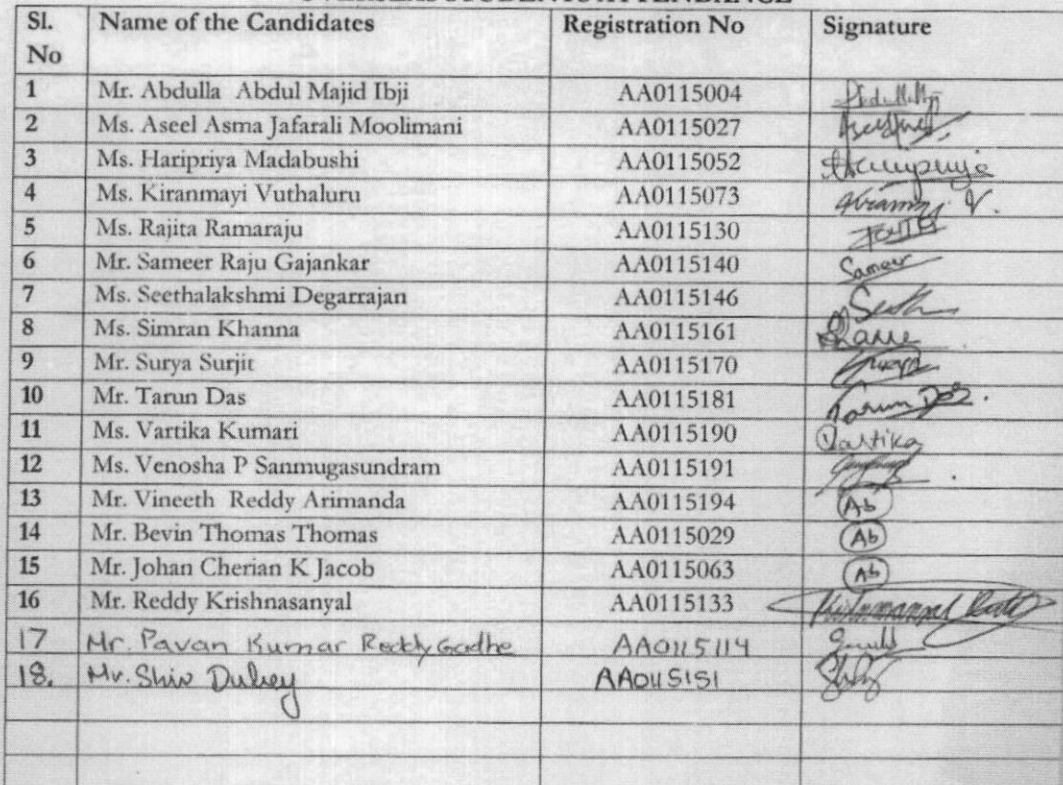 Sl. No Name of the Candidates Registration No Signature
1 Mr. Abdulla Abdul Majid Ibji AA0115004
2 Ms. Aseel Asma Jafarali Moolimani AA0115027
3 Ms. Haripriya Madabushi AA0115052 Haripriya
4 Ms. Kiranmayi Vuthaluru AA0115073
5 Ms. Rajita Ramaraju AA0115130
6 Mr. Sameer Raju Gajankar AA0115140 Sameer
7 Ms. Seethalakshmi Degarrajan AA0115146
8 Ms. Simran Khanna AA0115161
9 Mr. Surya Surjit AA0115170
10 Mr. Tarun Das AA0115181 Tarun Das.
11 Ms. Vartika Kumari AA0115190 Vartika
12 Ms. Venosha P Sanmugasundram AA0115191
13 Mr. Vineeth Reddy Arimanda AA0115194 Ab
14 Mr. Bevin Thomas Thomas AA0115029 Ab
15 Mr. Johan Cherian K Jacob AA0115063 Ab
16 Mr. Reddy Krishnasanyal AA0115133
17 Mr. Pavan Kumar Reddy Gadhe AA0115114
18. Mr. Shiv Dubey AA0115151